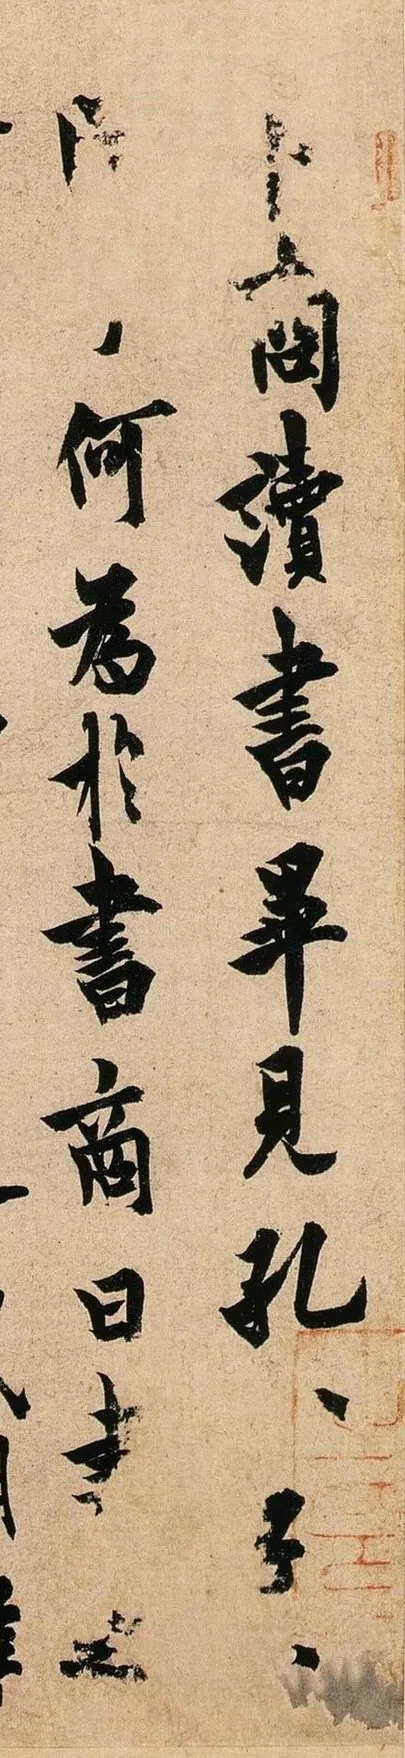 卜商讀書畢見孔、子、
何為於書商曰書之